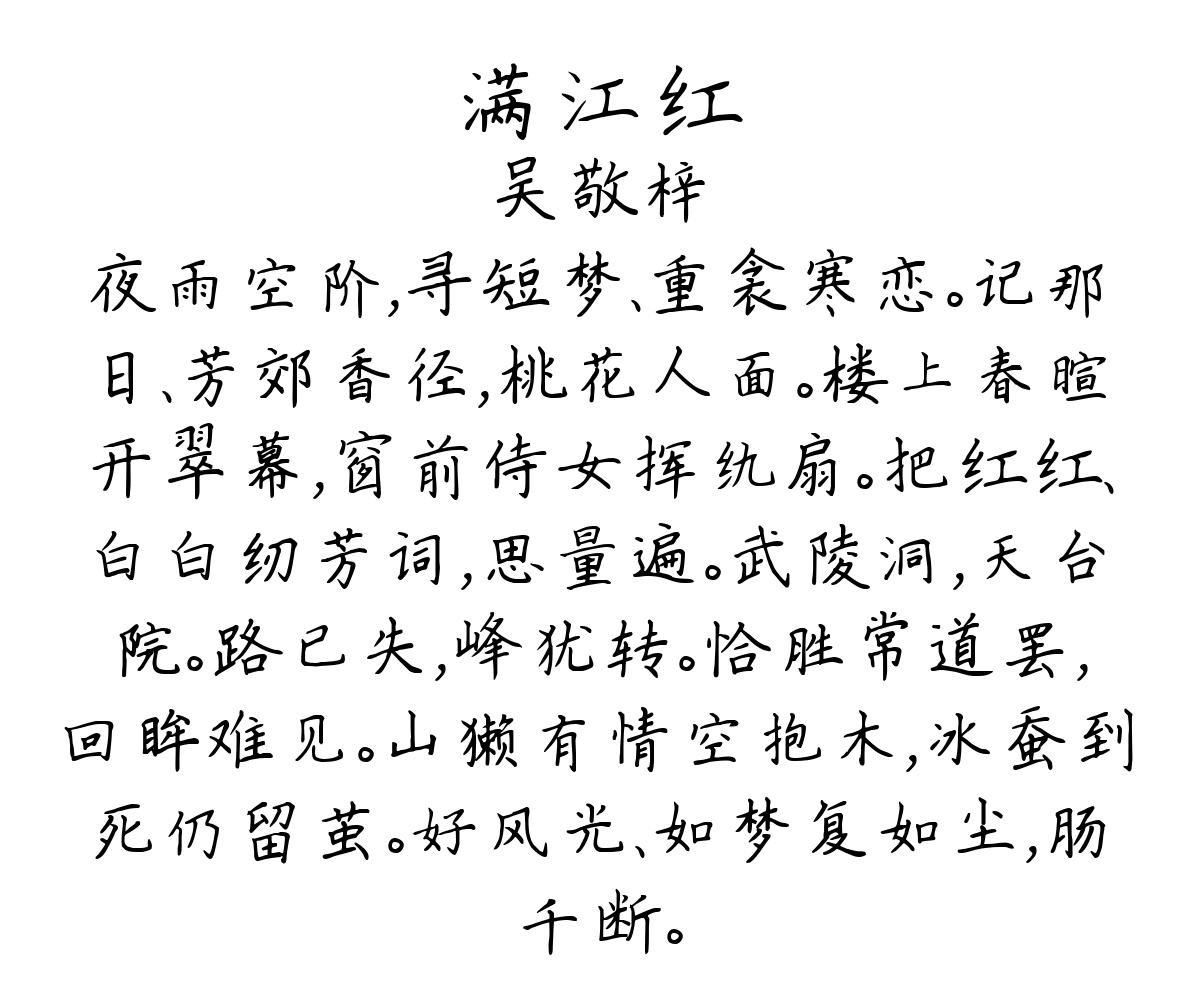 满江红
吴敬梓
夜雨空阶,寻短梦、重衾寒恋。记那
日、芳郊香径,桃花人面。楼上春暄
开翠幕,窗前侍女挥纨扇。把红红、
白白纫芳词,思量遍。武陵洞,天台
院。路已失,峰犹转。恰胜常道罢,
回眸难见。山獭有情空抱木,冰蚕到
死仍留茧。好风光、如梦复如尘,肠
千断。